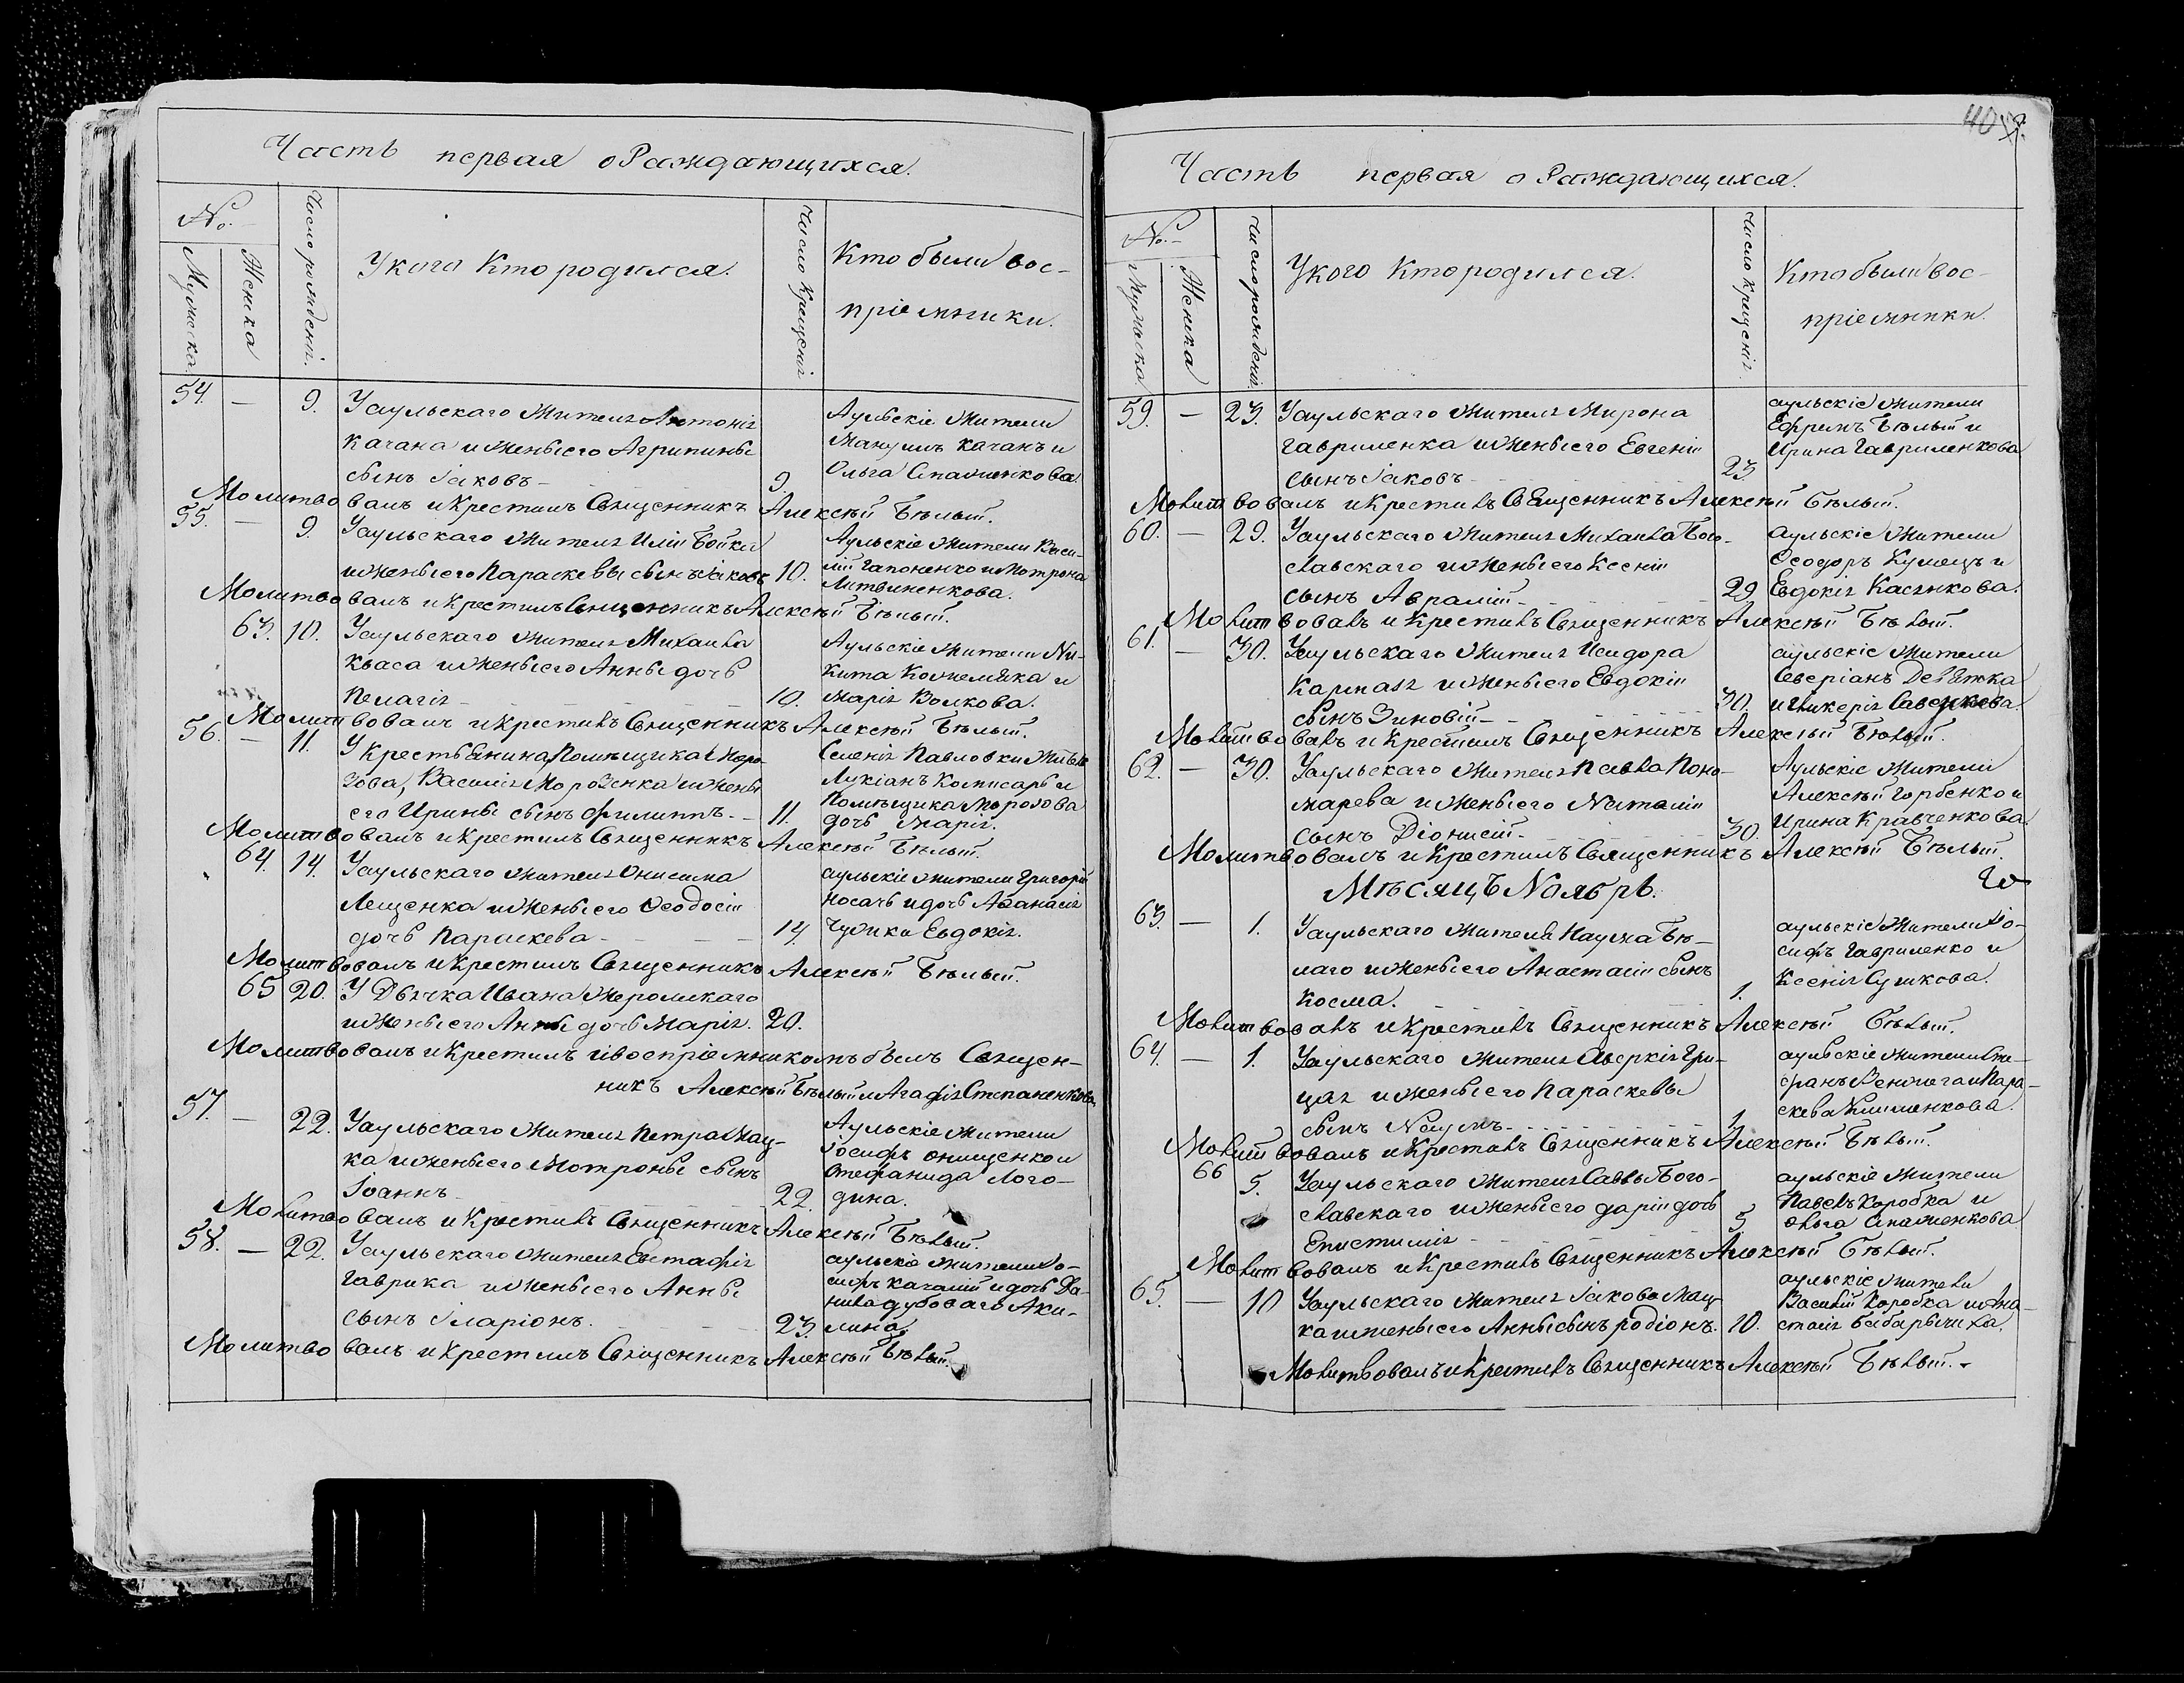 Часть первая о Раждающихся.
№.
Мужеска
Женска
Число рожденія.
У кого кто родился.
Число крещенія
Кто были вос-
пріемники.
54. — 9. У аульскаго жителя Антонія
Качана и жены его Агрипины
сынъ Іаковъ 9
Аульскіе жители
Мануилъ Качанъ и
Ольга
Молитвовалъ и крестилъ Священникъ Алексѣй Бѣлый.
55. — 9. У аульскаго жителя Иліи Бойка
и жены его Параскевы сынъ Іаковъ 10.
Аульскіе жители Васи-
лій Гапоненко и Мотрона
Литвиненкова.
Молитвовалъ и крестилъ Священникъ Алексѣй Бѣлый.
63. 10. У аульскаго жителя Михаила
Кваса и жены его Анны дочь
Пелагія 10.
Аульскіе жители Ни-
кита Кожемяка и
Марія Волкова.
Молитвовалъ и крестилъ Священникъ Алексѣй Бѣлый.
56. — 11. У крестьянина помѣщика Моро-
зова, Василія Морозенка и жены
его Ирины сынъ Филиппъ. 11.
Селенія Павловки
Лукіанъ Комисаръ и
Помѣщика Морозова
дочь Марія.
Молитвовалъ и крестилъ Священникъ Алексѣй Бѣлый.
64. 14. У аульскаго жителя Онисима
Лещенка и жены его Ѳеодосіи
дочь Параскева 14.
аульскіе жители Григорій
Носачь и дочь Аѳанасія
Чуйка Евдокія.
Молитвовалъ и крестилъ Священникъ Алексѣй Бѣлый.
65 20. У Дьячка Ивана Жеромскаго
и жены его Анны дочь Марія. 20.
Молитвовалъ и крестилъ и воспріемникомъ былъ Священ-
никъ Алексѣй Бѣлый и Агафія Степаненкова
57. — 22. У аульскаго жителя Петра Мац-
ка и жены его Мотроны сынъ
Іоаннъ 22.
Аульскіе жители
Іосифъ Онищенко и
Стефанида Лого-
дина.
Молитвовалъ и крестилъ Священникъ Алексѣй Бѣлый.
58. — 22. У аульскаго жителя Евстафія
Гаврика и жены его Анны
сынъ Иларіонъ. 23.
аульскіе жители Іо-
сифъ Качалій и дочь Да-
нила Дубоваго Аки-
лина.
Молитвовалъ и крестилъ Священникъ Алексѣй Бѣлый.
40
Часть первая о Раждающихся.
№.
Мужеска
Женска
Число рожденія.
У кого кто родился.
Число крещенія.
Кто были вос-
пріемники.
59. — 23. У аульскаго жителя Мирона
Гавриленка и жены его Евгеніи
сынъ Іаковъ 23
аульскіе жители
Ефремъ Бѣлый и
Ирина Гавриленкова
Молитвовалъ и крестилъ Священникъ Алексѣй Бѣлый.
60. — 29. У аульскаго жителя Михаила Бого-
славскаго и жены его Ксеніи
сынъ Аврамій 29
аульскіе жители
Ѳеодоръ Кумецъ и
Евдокія Касянкова.
Молитвовалъ и крестилъ Священникъ Алексѣй Бѣлый.
61. — 30. У аульскаго жителя Исидора
Карпаля и жены его Евдокіи
сынъ Зиновій 30.
аульскіе жители
Северіанъ Девятка
и Гликерія Савенкова.
Молитвовалъ и крестилъ Священникъ Алексѣй Бѣлый.
62. — 30. У аульскаго жителя Павла Поно-
марева и жены его Наталіи
сынъ Діонисій 30.
Аульскіе жители
Алексѣй Горбенко и
Ирина Кравченкова.
Молитвовалъ и крестилъ Священникъ Алексѣй Бѣлый.
Мѣсяцъ Ноябрь.
63. — 1. У аульскаго жителя Наума Бѣ-
лаго и жены его Анастасіи сынъ
Косма. 1.
аульскіе жители Іо-
сифъ Гавриленко и
Ксенія Сушкова.
Молитвовалъ и крестилъ Священникъ Алексѣй Бѣлый.
64. — 1. У аульскаго жителя Аверкія Гри-
цая и жены его Параскевы
сынъ Наумъ 1
аульскіе жители Сте-
фанъ и Пара-
скева Клименкова.
Молитвовалъ и крестилъ Священникъ Алексѣй Бѣлый.
66 5. У аульскаго жителя Саввы Бого-
славскаго и жены его Даріи дочь
Епистимія 5
аульскіе жители
Павелъ Коробка и
Ольга
Молитвовалъ и крестилъ Священникъ Алексѣй Бѣлый.
65. — 10 У аульскаго жителя Іакова Мац-
ка и жены его Анны сынъ Родіонъ. 10.
аульскіе жители
Василій Коробка и Ана-
стасія
Молитвовалъ и крестилъ Священникъ Алексѣй Бѣлый.